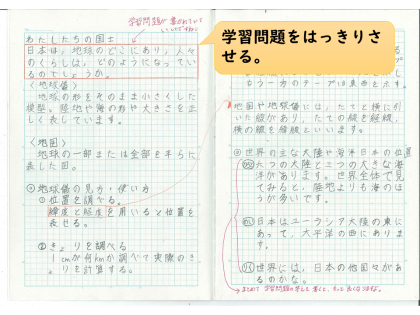 学習問題が書かれていて
いいですね
わたしたちの国土
日本は、地球のどこにあり、人々
のくらしは、どのようになってい
るのでしょうか。
〈地球儀〉
地球の形をそのまま小さくした
模型。陸地や海の形や大きさを正
しく表しています。
〈地図〉
地球の一部または全部を平らに
表した図。
地球儀の見方・使い方
①位置を調べる。
緯度と経度を用いると位置を
表せる。
②きょりを調べる
1cmが何kmか調べて実際のき
ょりを計算する。
学習問題をはっきりさ
せる。
もう一方のテープは東西を示す。
地図や地球儀には、たてと横に引
いた線があり、たての線を経線、
横の線を緯線といいます。
世界の主な大陸や海洋日本の位置
六つの大陸と三つの大きな海
洋があります。世界全体で見
てみると、陸地よりも海のほ
うが多いです。
日本はユーラシア大陸の東に
あって、太平洋の西にありま
す。
世界には、日本の他国々があ
るのかな。
まとめて学習問題の